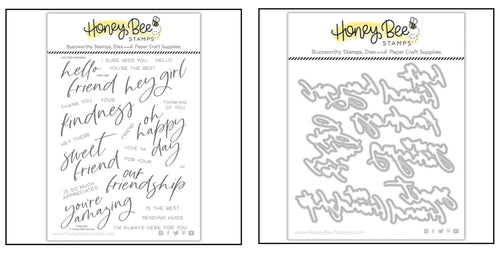 Honey Bee
STAMPS
Buzzworthy Stamps, Dies and Paper Craft Supplies
I SURE MISS YOU HELLO
hello YOU'RE THE BEST
friend hey girl
THANK YOU YOUR
THINKING
OF YOU
kindness
FRIEND
oh
happy
day
HEY THERE
LOVE YA
sweet
friend
FOR YOUR
IS SO MUCH
APPRECIATED
our
friendship
you're
amazing
IS THE BEST
SENDING HUGS
I'M ALWAYS HERE FOR YOU
www.HoneyBeeStamps.com
Honey Bee
STAMPS
Buzzworthy Stamps, Dies and Paper Craft Supplies
www.HoneyBeeStamps.com